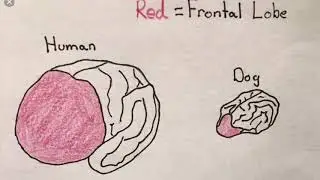 Red = Frontal Lobe
Human
Dog